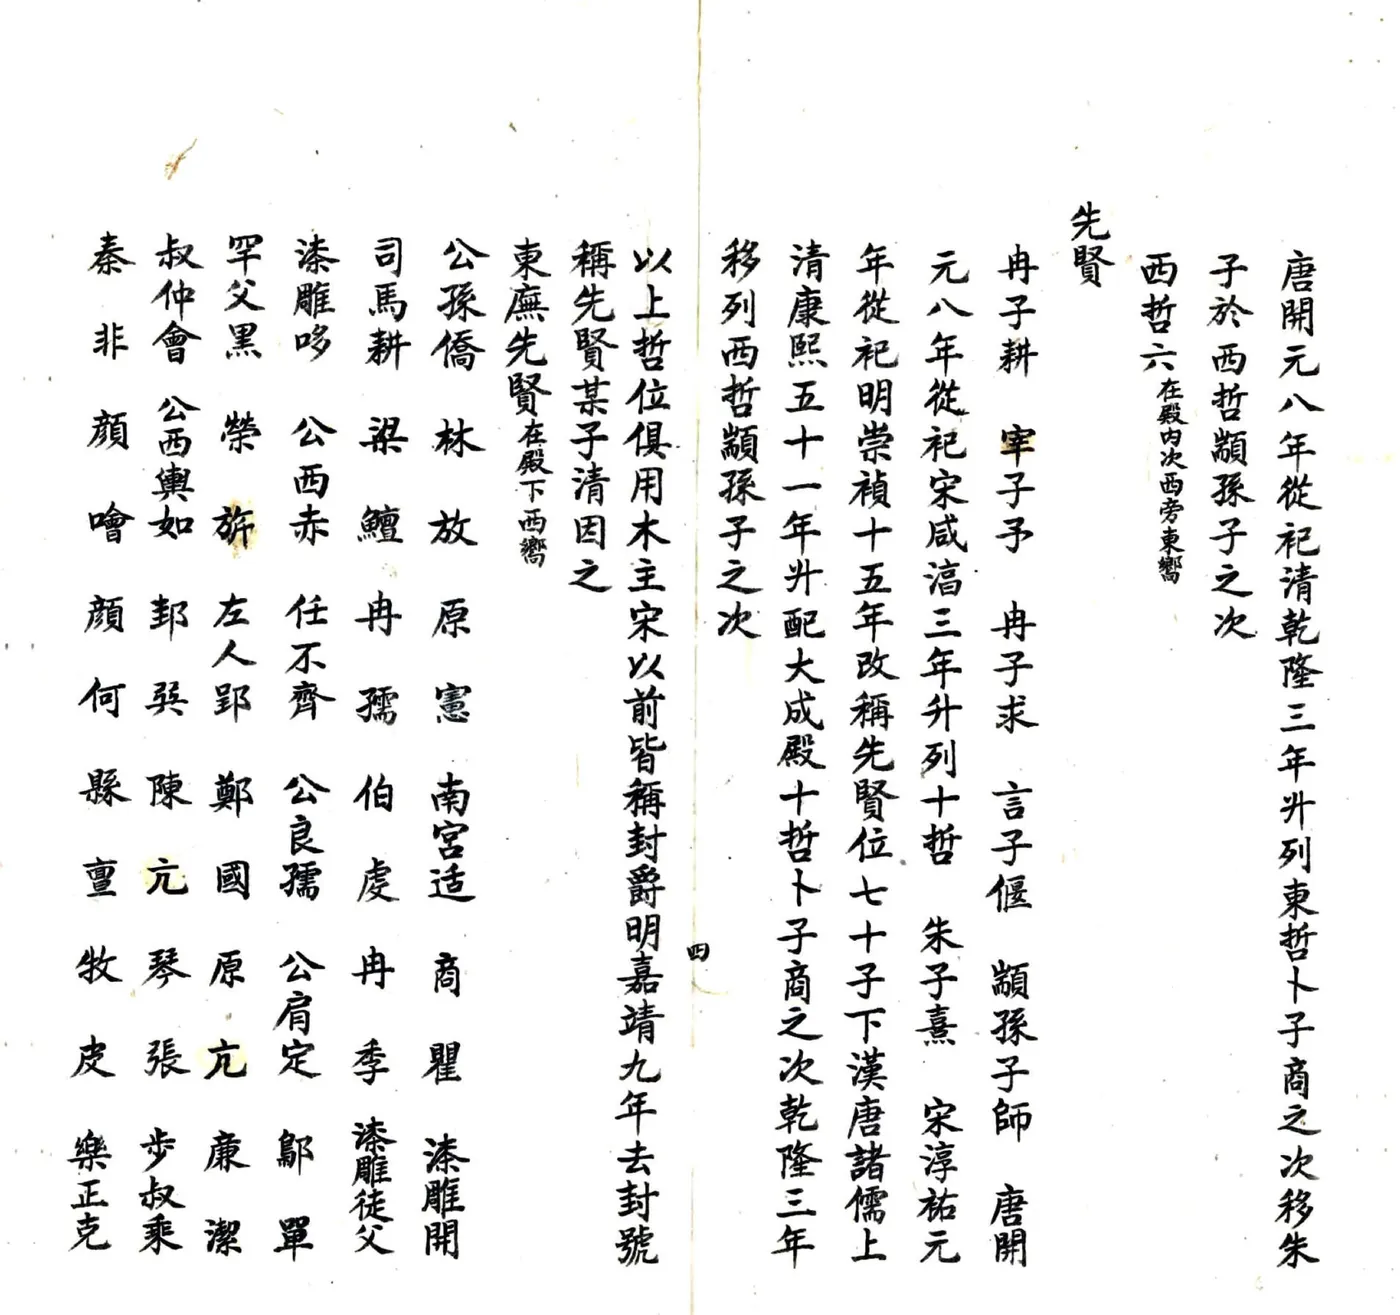 唐開元八年從祀清乾隆三年升列東哲卜子商之次移朱
子於西哲顓孫子之次
西哲六在殿內次西旁東嚮
先賢
冉子耕 宰子予 冉子求 言子偃 顓孫子師 唐開
元八年從祀宋咸淳三年升列十哲 朱子熹 宋淳祐元
年從祀明崇禎十五年改稱先賢位七十子下漢唐諸儒上
清康熙五十一年升配大成殿十哲卜子商之次乾隆三年
移列西哲顓孫子之次
四
以上哲位俱用木主宋以前皆稱封爵明嘉靖九年去封號
稱先賢某子清因之
東廡先賢在殿下西嚮
公孫僑 林放 原憲 南宮适 商瞿 漆雕開
司馬耕 梁鱣 冉孺 伯虔 冉季 漆雕徒父
漆雕哆 公西赤 任不齊 公良孺 公肩定 鄡單
罕父黑 榮旂 左人郢 鄭國 原亢 廉潔
叔仲會 公西輿如 邽巽 陳亢 琴張 步叔乘
秦非 顏噲 顏何 縣亶 牧皮 樂正克